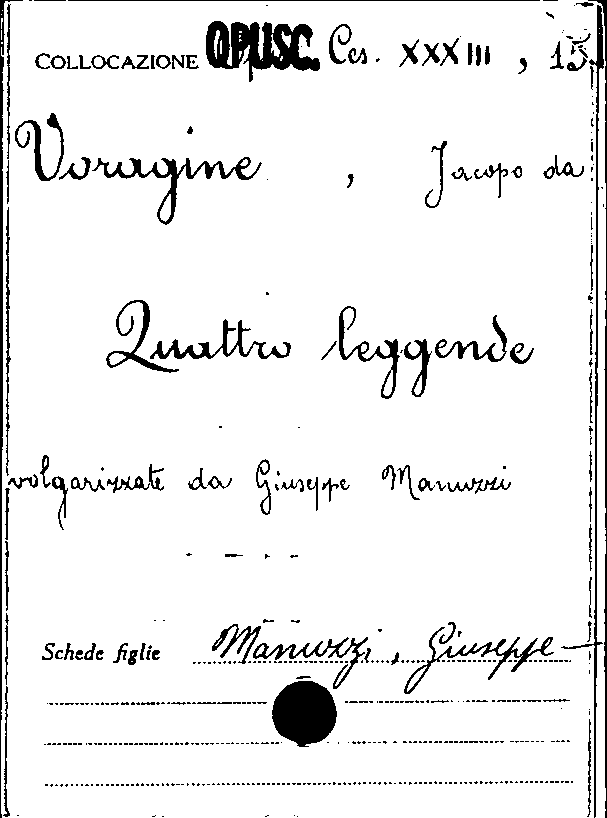 COLLOCAZIONE OPUSC. Ces. XXXIII, 15
Voragine, Jacopo da
Quattro leggende
volgarizzate da Giuseppe Manuzzi
Schede figlie Manuzzi, Giuseppe